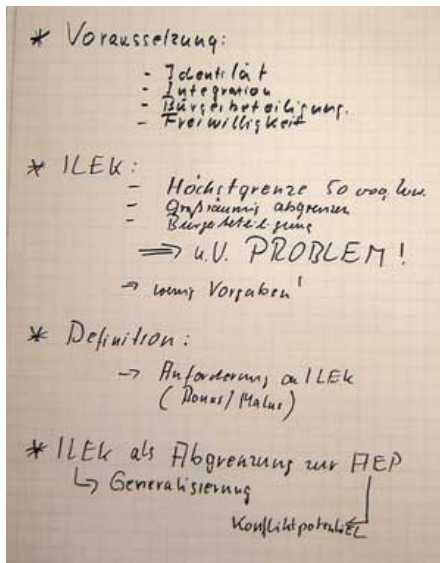 * Voraussetzung:
- Identität
- Integration
- Bürgerbeteiligung.
- Freiwilligkeit
* ILEK:
- Höchstgrenze 50 000
- Großräumig abgrenzen
- Bürgerbeteiligung
⇒ u.U. PROBLEM!
→ wenig Vorgaben!
* Definition:
→ Anforderung an ILEK
(Bonus/Malus)
* ILEK als Abgrenzung zur AEP
↳ Generalisierung
Konfliktpotential